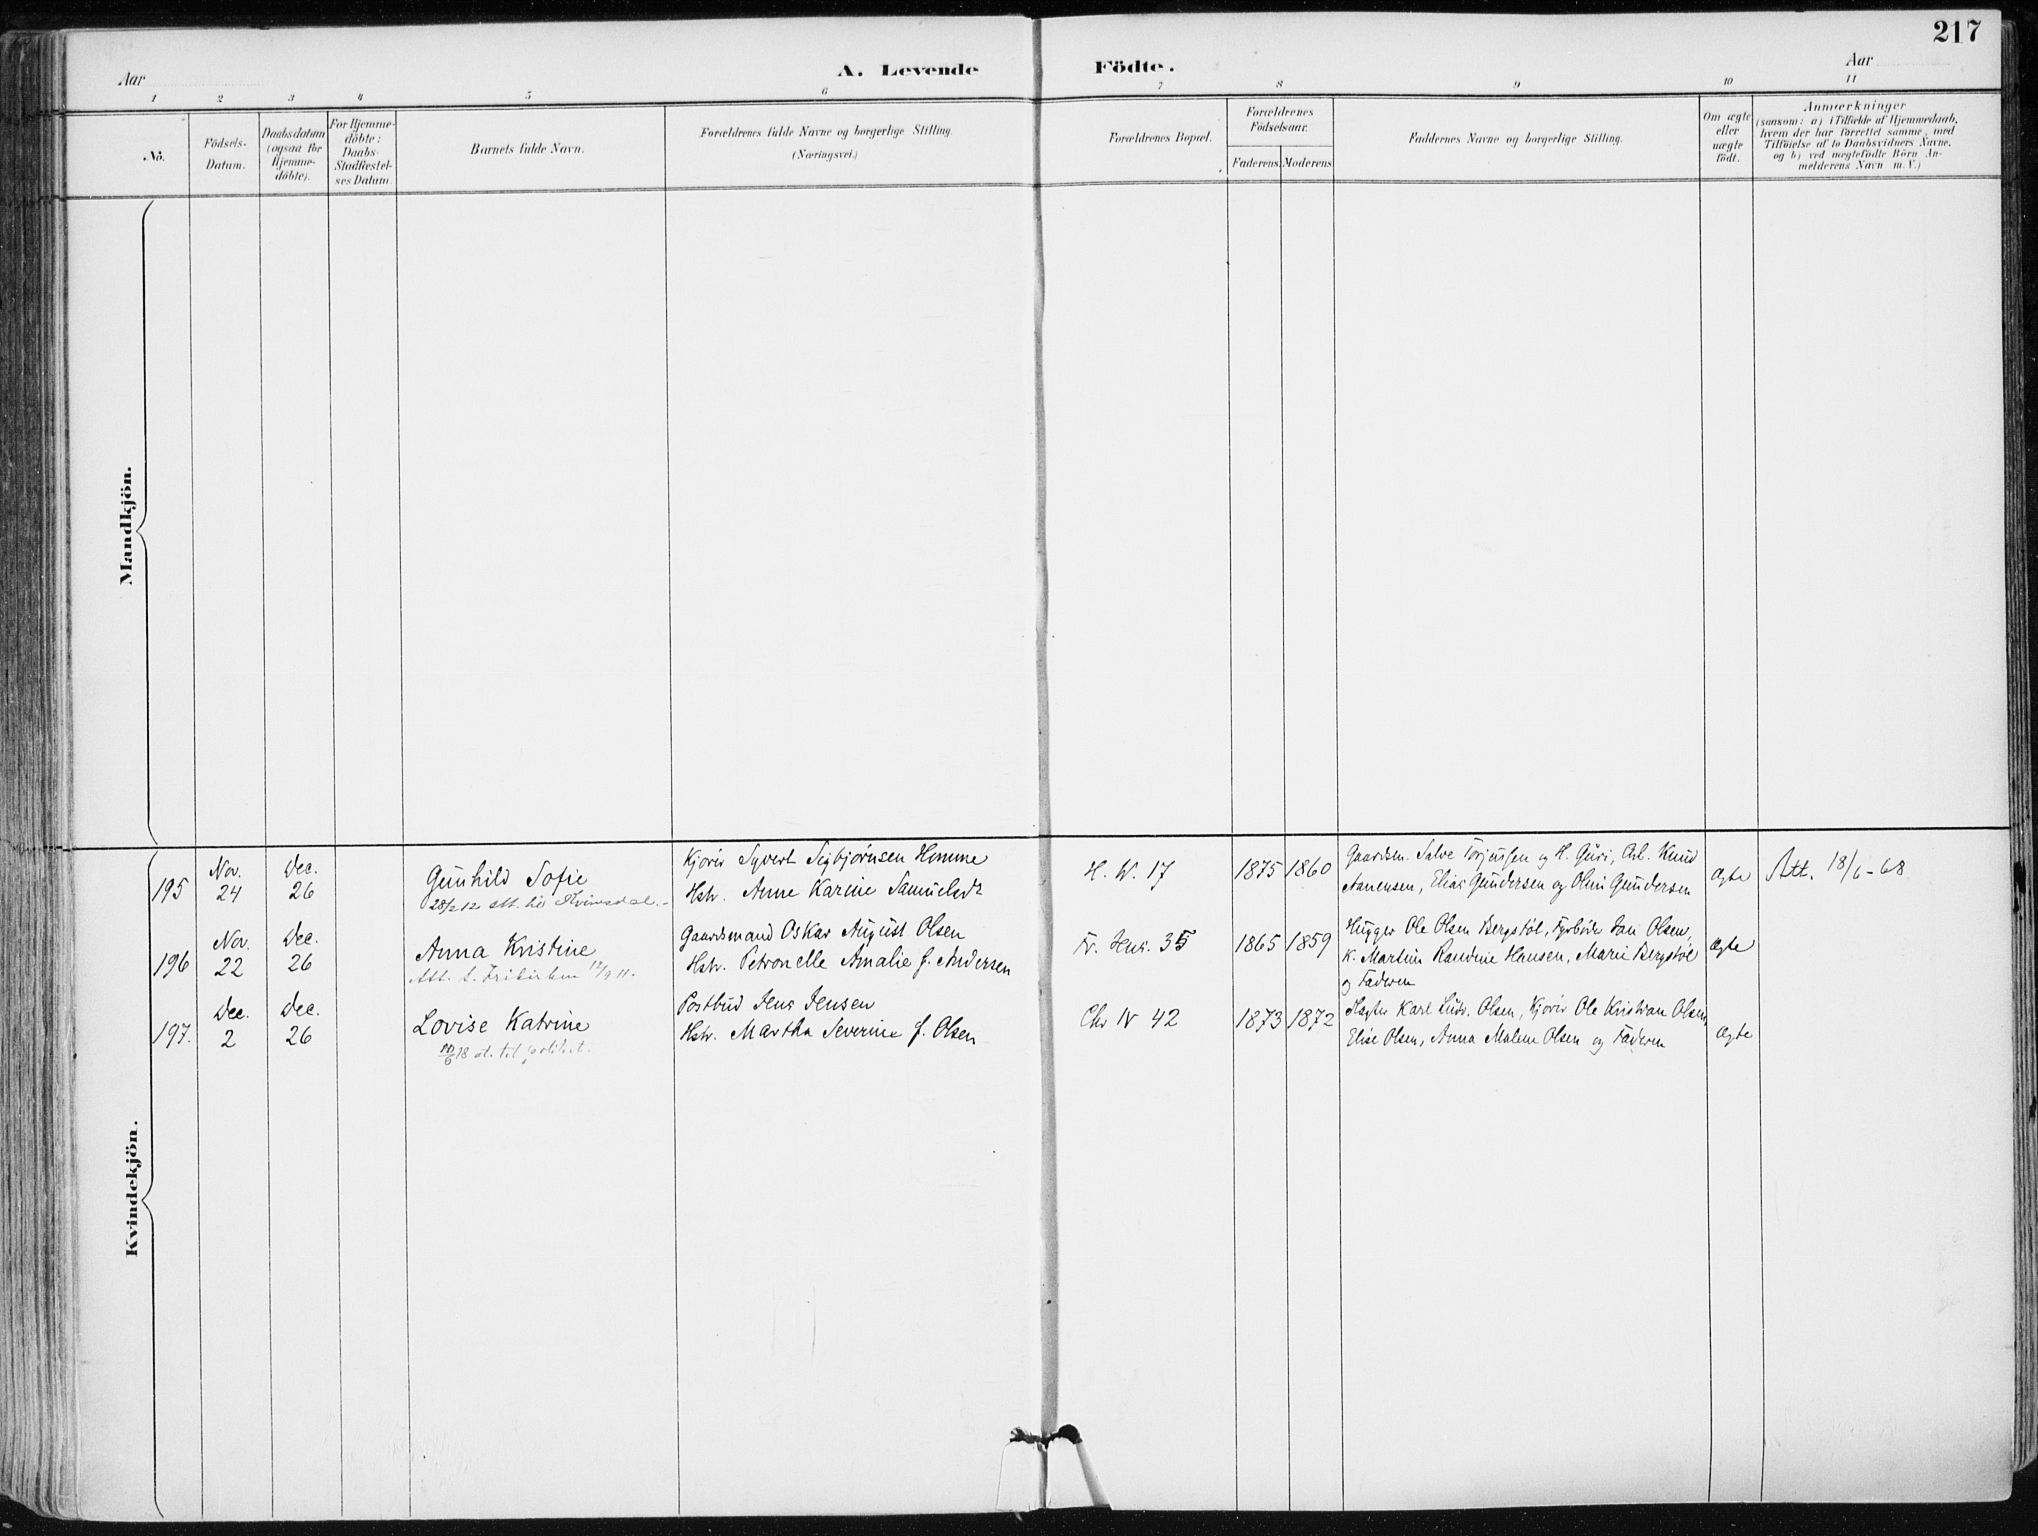 217
Aar
A. Levende Födte.
Aar
1 2 3 4 5 6 7 8 9 10 11
No.
Födsels-
Datum.
Daabsdatum
(ogsaa for
Hjemme-
döbte).
For Hjemme-
döbte:
Daabs-
Stadfæstel-
ses Datum.
Barnets fulde Navn.
Forældrenes fulde Navne og borgerlige Stilling.
(Næringsvei.)
Forældrenes Bopæl.
Forældrenes
Födselsaar.
Faderens. Moderens.
Faddernes Navne og borgerlige Stilling.
Om ægte
eller
uægte
födt.
Anmærkninger
(saasom: a) i Tilfælde af Hjemmedaab,
hvem der har forrettet samme, med
Tilföielse af to Daabsvidners Navne,
og b) ved uægtefödte Börn An-
melderens Navn m. V.)
Mandkjön.
Kvindekjön.
195
Nov.
24
Dec.
26
Gunhild Sofie
28/2 12 att. til Kvinesdal.
Kjører Syvert Sigbjørnsen Homme
Hstr. Anne Karine Samuelsdt
H. W. 17
1875 1860
Gaardm. Salve Torjussen og H. Guri, Arb. Knud
Aanensen, Elias Gundersen og Olini Gundersen
ægte
Att. 18/6-68
196
Nov.
22
Dec.
26
Anna Kristine
Att. t. Frikirken 12/9 11.
Gaardsmand Oskar August Olsen
Hstr. Petronelle Amalie f. Andersen
Fr. Hens. 35
1865 1859
Hugger Ole Olsen Bergstøl, Fyrbøder Jan Olsen,
K. Martin Randine Hansen, Marie Bergstøl
og Faderen
ægte
197.
Dec.
2
Dec.
26
Lovise Katrine
10/6 18 at. til politiet.
Postbud Jens Jensen
Hstr. Martha Severine f. Olsen
Chr IV 42
1873 1872
Slagter Karl Ludv. Olsen, Kjører Ole Kristian Olsen
Elise Olsen, Anna Malene Olsen og Faderen
ægte